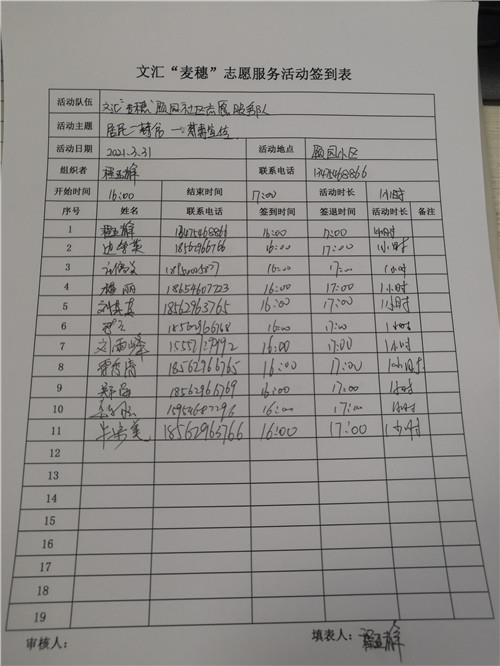 文汇“麦穗”志愿服务活动签到表
活动队伍 文汇“麦穗”颐园社区志愿服务队
活动主题
活动日期 2021.3.31 活动地点 颐园小区
组织者 联系电话 13475468866
开始时间 16:00 结束时间 17:00 活动时长 1小时
序号 姓名 联系电话 签到时间 签退时间 活动时长 备注
1 13475468866 16:00 17:00 1小时
2 18562966766 16:00 17:00 1小时
3 16:00 17:00 1小时
4 杨丽 18654607723 16:00 17:00 1小时
5 18562963765 16:00 17:00 1小时
6 18562966768 16:00 17:00 1小时
7 刘雨峰 16:00 17:00 1小时
8 18562966765 16:00 17:00 1小时
9 18562965769 16:00 17:00 1小时
10 15954687296 16:00 17:00 1小时
11 18562963766 16:00 17:00 1小时
12
13
14
15
16
17
18
19
审核人： 填表人：